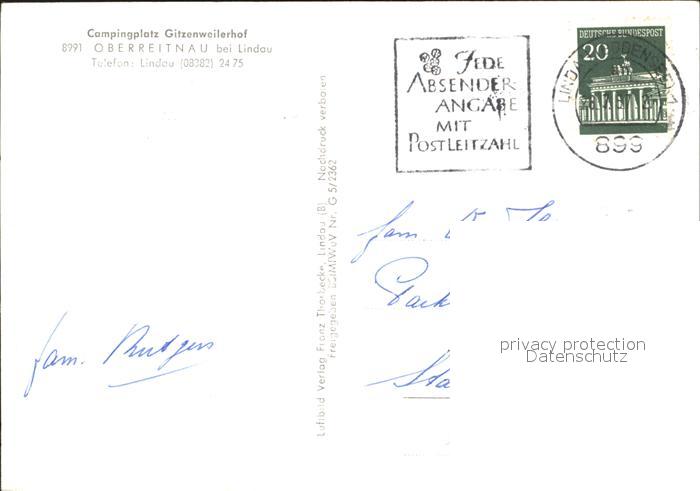 Campingplatz Gitzenweilerhof
8991 OBERREITNAU bei Lindau
Telefon: Lindau (08382) 24 75
Luftbild Verlag Franz Thorbecke, Lindau (B) Nachdruck verboten
Freigegeben BStMfWuV Nr. G 5/2362
JEDE
ABSENDER
ANGABE
MIT
POSTLEITZAHL
DEUTSCHE BUNDESPOST
20
899
fam.
fam. Rutgers
privacy protection
Datenschutz